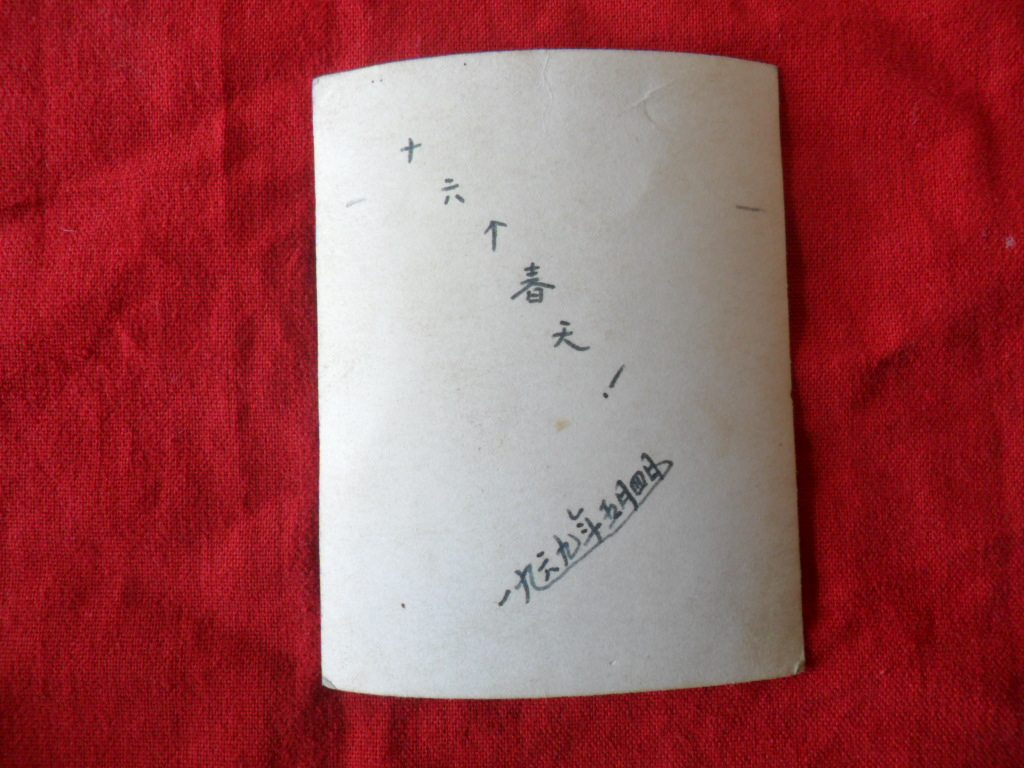 十六个春天!
一九六九年五月四日